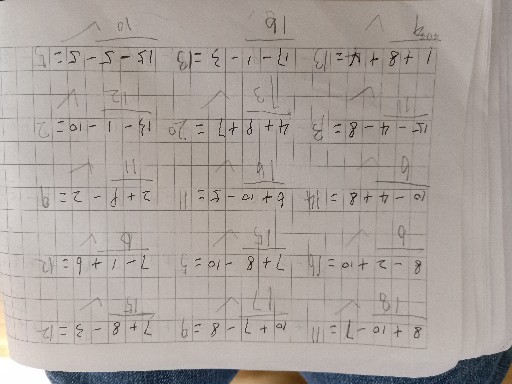 8+10-7=11 10+7-8=9 7+8-3=12
18 17 15
8-2+10=16 7+8-10=5 7-1+6=12
6 15 6
10-4+8=14 6+10-5=11 2+9-2=9
6 16 11
15-4-8=3 4+9+7=20 13-1-10=2
11 13 12
1+8+4=13 17-1-3=13 15-5-5=5
9 16 10